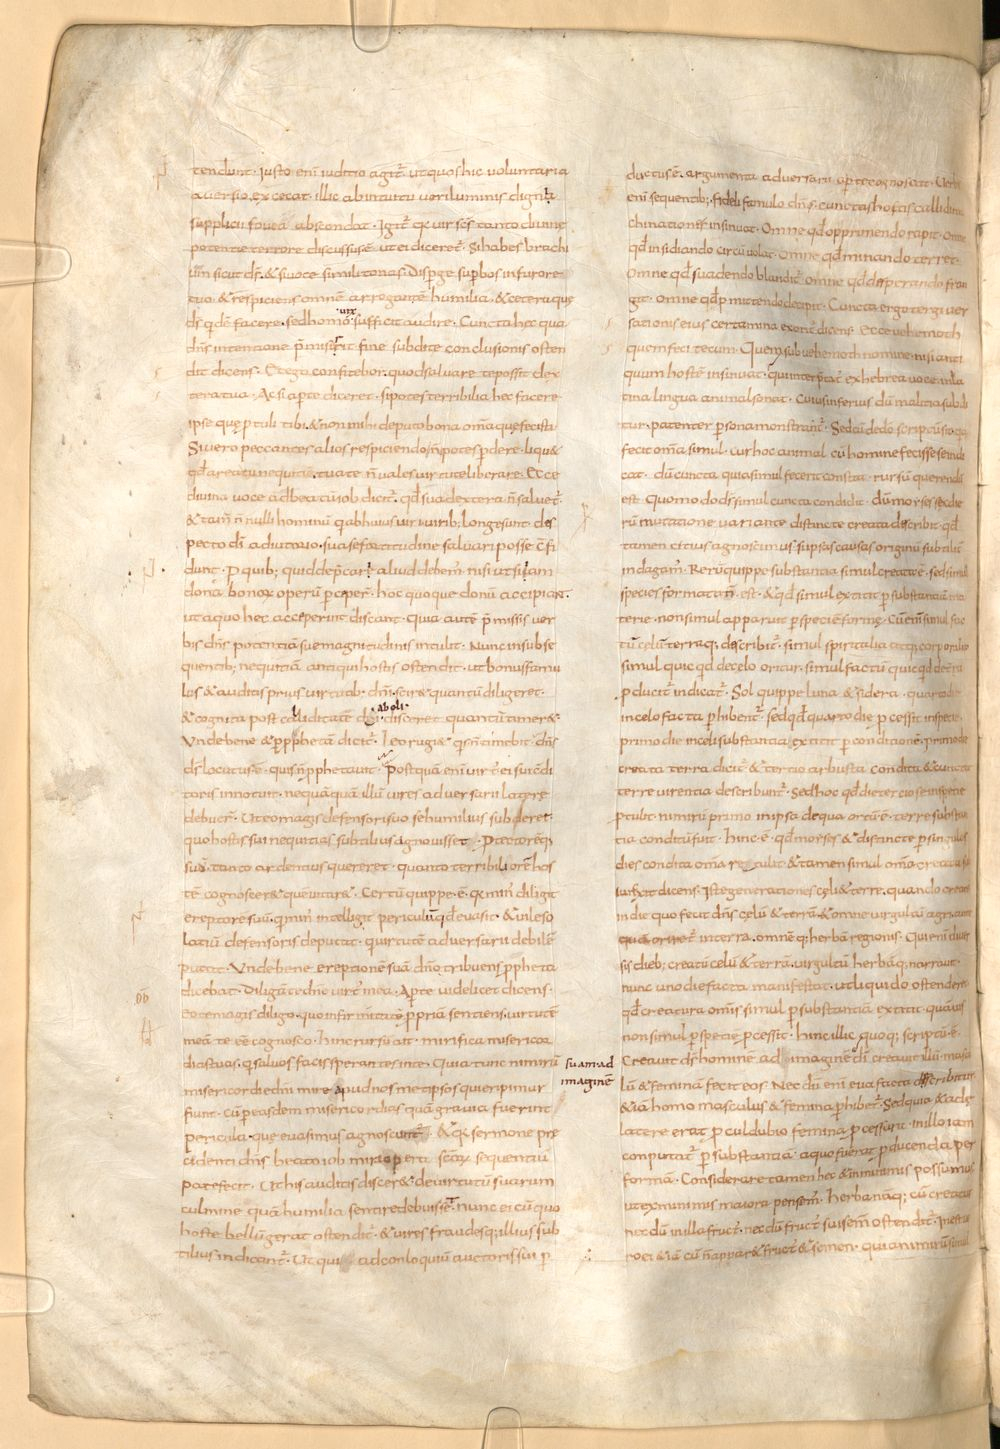 tendunt. Iusto eni iuditio agit̃ ut quos hic voluntaria
aversio excecat. illic ab intuitu veri luminis digna
supplicii fovea abscondat. Igit̃ qa vir scs̃ tanto divine
potentie terrore discussus ẽ ut ei diceret̃. Si habes brachi
um sicut ds̃. & si voce simili tonas. Disp̃ge sup̃bos in furore
tuo. & respiciens omnẽ arrogantẽ humilia. & cetera que
ds̃ qdẽ facere. sed homo vix sufficit audire. Cuncta hec qua
dns̃ intentione p̃miserit fine subdite conclusionis osten
dit dicens. Et ego confitebor. quod salvare te possit dex
tera tua. Ac si apte diceret. si potes terribilia hec facere
ipse quę p̃tuli tibi. & non mihi deputo bona om̃a quę fecisti.
Si vero peccantes alios respiciendo ñ potes p̃dere. liqu&
qd̃ a reatu nequitie tuę te ñ vales virtute liberare. Ecce
divina voce ad beatũ iob dicit̃. qd̃ sua dextera ñ salvet̃.
& tam̃ ñ nulli hominũ q ab huius viri virib; longe sunt des
pecto dĩ adiutorio. sua se fortitudine salvari posse cõfi
dunt. P quib; quid dep̃cari aliud debem̃. nisi ut si iam
dona bonoꝝ operũ p̃ceper̃. hoc quoque donũ accipiant.
ut a quo hec acceperint discant. Quia autẽ p̃missis ver
bis dns̃ potentiã suę magnitudinis intulit. Nunc in subse
quentib; nequitiã antiqui hostis ostendit. ut bonus famu
lus & auditas prius virtutib; dñi. scir& quantũ diligeret.
& cognita post calliditatẽ diaboli. disceret quantũ timer&.
Unde bene & p̱ p̱phetã dicit̃. Leo rugi&. qs ñ timebit. dns̃
ds̃ locutus ẽ. quis ñ p̱phetavit. Postquã eni virt̃ ei sui cõdi
toris innotuit. nequãquã illũ vires adversarii latere
debuer̃. Ut eo magis defensori suo se humilius subderet.
quo hostis sui nequitias subtilius agnovisset. Ptectorẽq;
suũ. tanto ardentius quereret. quanto terribiliorẽ hos
tẽ cognoscer& quẽ vitar&. Certũ quippe ẽ. qa min̾ diligit
ereptorẽ suũ. q min̾ intelligit periculũ qd evasit. & vile so
latiũ defensoris deputat. qui virtutẽ adversarii debilẽ
putat. Unde bene ereptionẽ suã dño tribuens p̱pheta
dicebat. Diligã te dñe virt̃ mea. Ap̱te videlicet dicens.
Eo te magis diligo. quo infirmitatẽ p̱priã sentiens. virtutẽ
meã te eẽ cognosco. Hinc rursũ ait. mirifica misericor
dias tuas. q salvos facis sperantes in te. Quia tunc nimirũ
misericordie dñi mire apud nosmetipsos querip̱imur
fiunt. Cũ p̱ easdem misericordias quã gravia fuerint
pericula. que evasimus agnoscunt̃. & qa sermone pre
cedenti dns̃ beato iob mira operũ scoꝝ sequentiũ
patefecit. Ut his auditis discer& de virtutũ suarum
culmine quã humilia sentire debuisset. nunc ei cũ quo
hoste bellũ gerat ostendit̃. & vires fraudesq; illius sub
tilius indicant̃. Ut qui ad conloquiũ auctoris sui p̱
ductus ẽ. argumenta adversarii ap̱te cognoscat. Verbis
eni sequentib; fideli famulo dns̃. cunctas hostis callidi ma
chinationes insinuat. Omne qd̃ opprimendo rapit. Omne
qd̃ insidiando circũvolat. Omne qd̃ minando terret.
Omne qd̃ suadendo blandit̃. omne qd̃ desperando fran
git. omne qd̃ p̱mittendo decipit. Cuncta ergo tergiver
sationis eius certamina exorit̃ dicens. Ecce vehemoth
quem feci tecum. Quem sub vehemoth nomine. nisi anti
quum hostẽ insinuat. qui interp̃tat̃ ex hebrea voce in la
tina lingua animal sonat. Cuius inferius dũ malitia subdi
tur. patenter p̱sona monstrant̃. Sed cũ de dõ scriptũ sit qa
fecit om̃a simul. cur hoc animal cũ homine fecisse se indi
cat. dũ cuncta quia simul fecerit constat. rursũ querendũ
est. Quomodo ds̃ simul cuncta condidit. dũ moyses sex die
rũ mutatione variante distincte creata describit. qd̃
tamen citius agnoscimus. si ipsas causas originũ subtiliẽ
indagam̃. Rerũ quippe substantia simul creata ẽ. sed simul
species formata ñ est. & qd̃ simul extitit p̱ substantiã ma
terie. non simul apparuit p̱ speciẽ formę. Cũ eni simul fac
tũ cęlũ terraq; describit̃. simul spiritalia atq; corporalia
simul quicqd̃ de celo oritur. simul factũ quicqd̃ de terra
p̱ducit̃ indicat̃. Sol quippe luna & sidera quarto die
in celo facta p̱hibent̃. sed qd̃ quarto die p̱cessit in specie.
primo die in celi substantia extitit p̱ conditionẽ. primo die
creata terra dicit̃ & tertio arbusta condita & cuncta
terre virentia describunt̃. Sed hoc qd̃ die tertio se in specie
p̱tulit. nimirũ primo in ipsa de qua ortũ ẽ. terre substan
tia conditũ fuit. Hinc ẽ. qd̃ moyses & distincte p̱ singulos
dies condita om̃a retulit & tamen simul om̃a creata sub
iunxit dicens. Iste generationes cęli & terre. quando create s̃
in die quo fecit dns̃ cęlũ & terrã. & omne virgultũ agri. ante
quã oriret̃ in terra. omnẽq; herbã regionis. Qui eni diver
sis dieb; creatũ celũ & terrã. virgultũ herbãq; narravit.
nunc uno die facta manifestat. ut liquido ostenderet
qd̃ creatura om̃is simul p̱ substantiã extitit. quãvis
non simul p̱ speciẽ p̱cessit. hinc illic quoq; scriptũ ẽ.
Creavit ds̃ hominẽ ad imaginẽ dĩ creavit illũ. mascu
suam. ad
imaginẽ
lũ & feminã fecit eos. Nec dũ eni eva facta describitur
& iã homo masculus & femina p̱hibet̃. Sed quia ex adę
latere erat p̱culdubio femina p̱cessura. in illo iam
conputat̃ p̱ substantiã. a quo fuerat p̱ducenda per
formã. Considerare tamen hec & in minimis possumus
ut ex minimis maiora pensem̃. herba nãq; cũ creatur
nec dũ in illa fruct̃. nec dũ fruct̃ sui semen ostendit̃. Inest ve
ro ei & iã cũ ñ appar& fruct̃ & semen. quia nimirũ simul